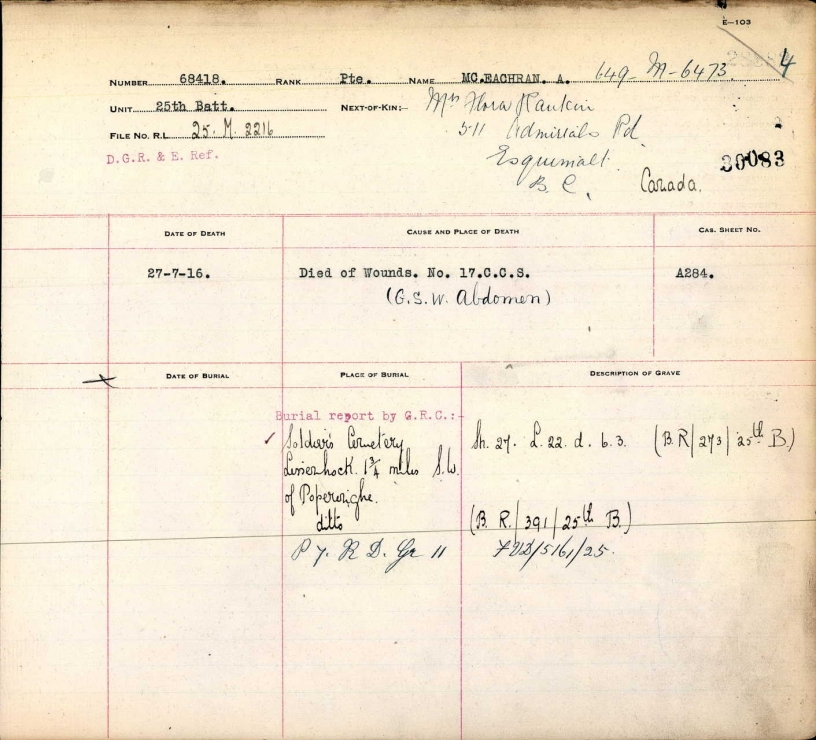 E—103
NUMBER 68418. RANK Pte. NAME MC.EACHRAN. A. 649-M-6473. 4
UNIT 25th Batt. NEXT-OF-KIN:- Mrs Flora Rankin
FILE NO. R.L. 25. M. 2216 511 Admirials Rd
D.G.R. & E. Ref. Esquimalt 30083
B.C, Canada.
DATE OF DEATH CAUSE AND PLACE OF DEATH CAS. SHEET NO.
27-7-16. Died of Wounds. No. 17.C.C.S. A284.
(G.S.W. Abdomen)
DATE OF BURIAL PLACE OF BURIAL DESCRIPTION OF GRAVE
Burial report by G.R.C.:-
✓ Soldiers Cemetery Sh. 27. L. 22. d. 6.3. (B.R/273/25th B.)
Lissenhock. 1¾ miles S.W.
of Poperinghe.
ditto (B.R./391/25th B.)
P 7. R D. Gr 11 /5161/25.